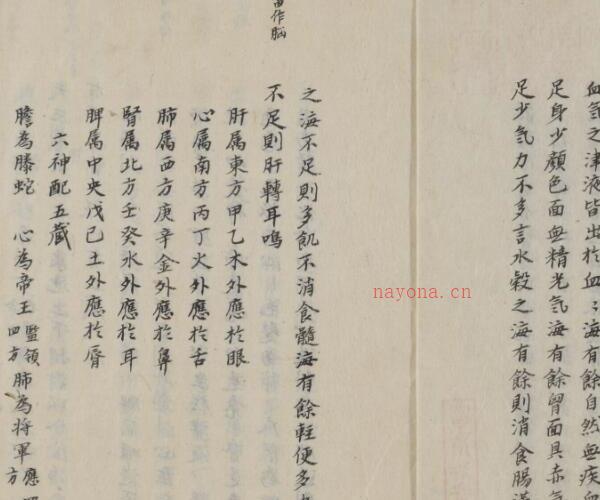 血氣之津液皆出於血〻海有餘自然無疾血
足身少顏色面無精光气海有餘胷面具赤气
足少气力不多言水穀之海有餘則消食腸滿
之海不足則多飢不消食髓海有餘輕便多
不足則肝轉耳鳴
肝属東方甲乙木外應於眼
心属南方丙丁火外應於舌
肺属西方庚辛金外應於鼻
腎属北方壬癸水外應於耳
脾属中央戊己土外應於脣
六神配五蔵
膽為螣蛇 心為帝王監領四方肺為將軍應
作脳
nayona.cn